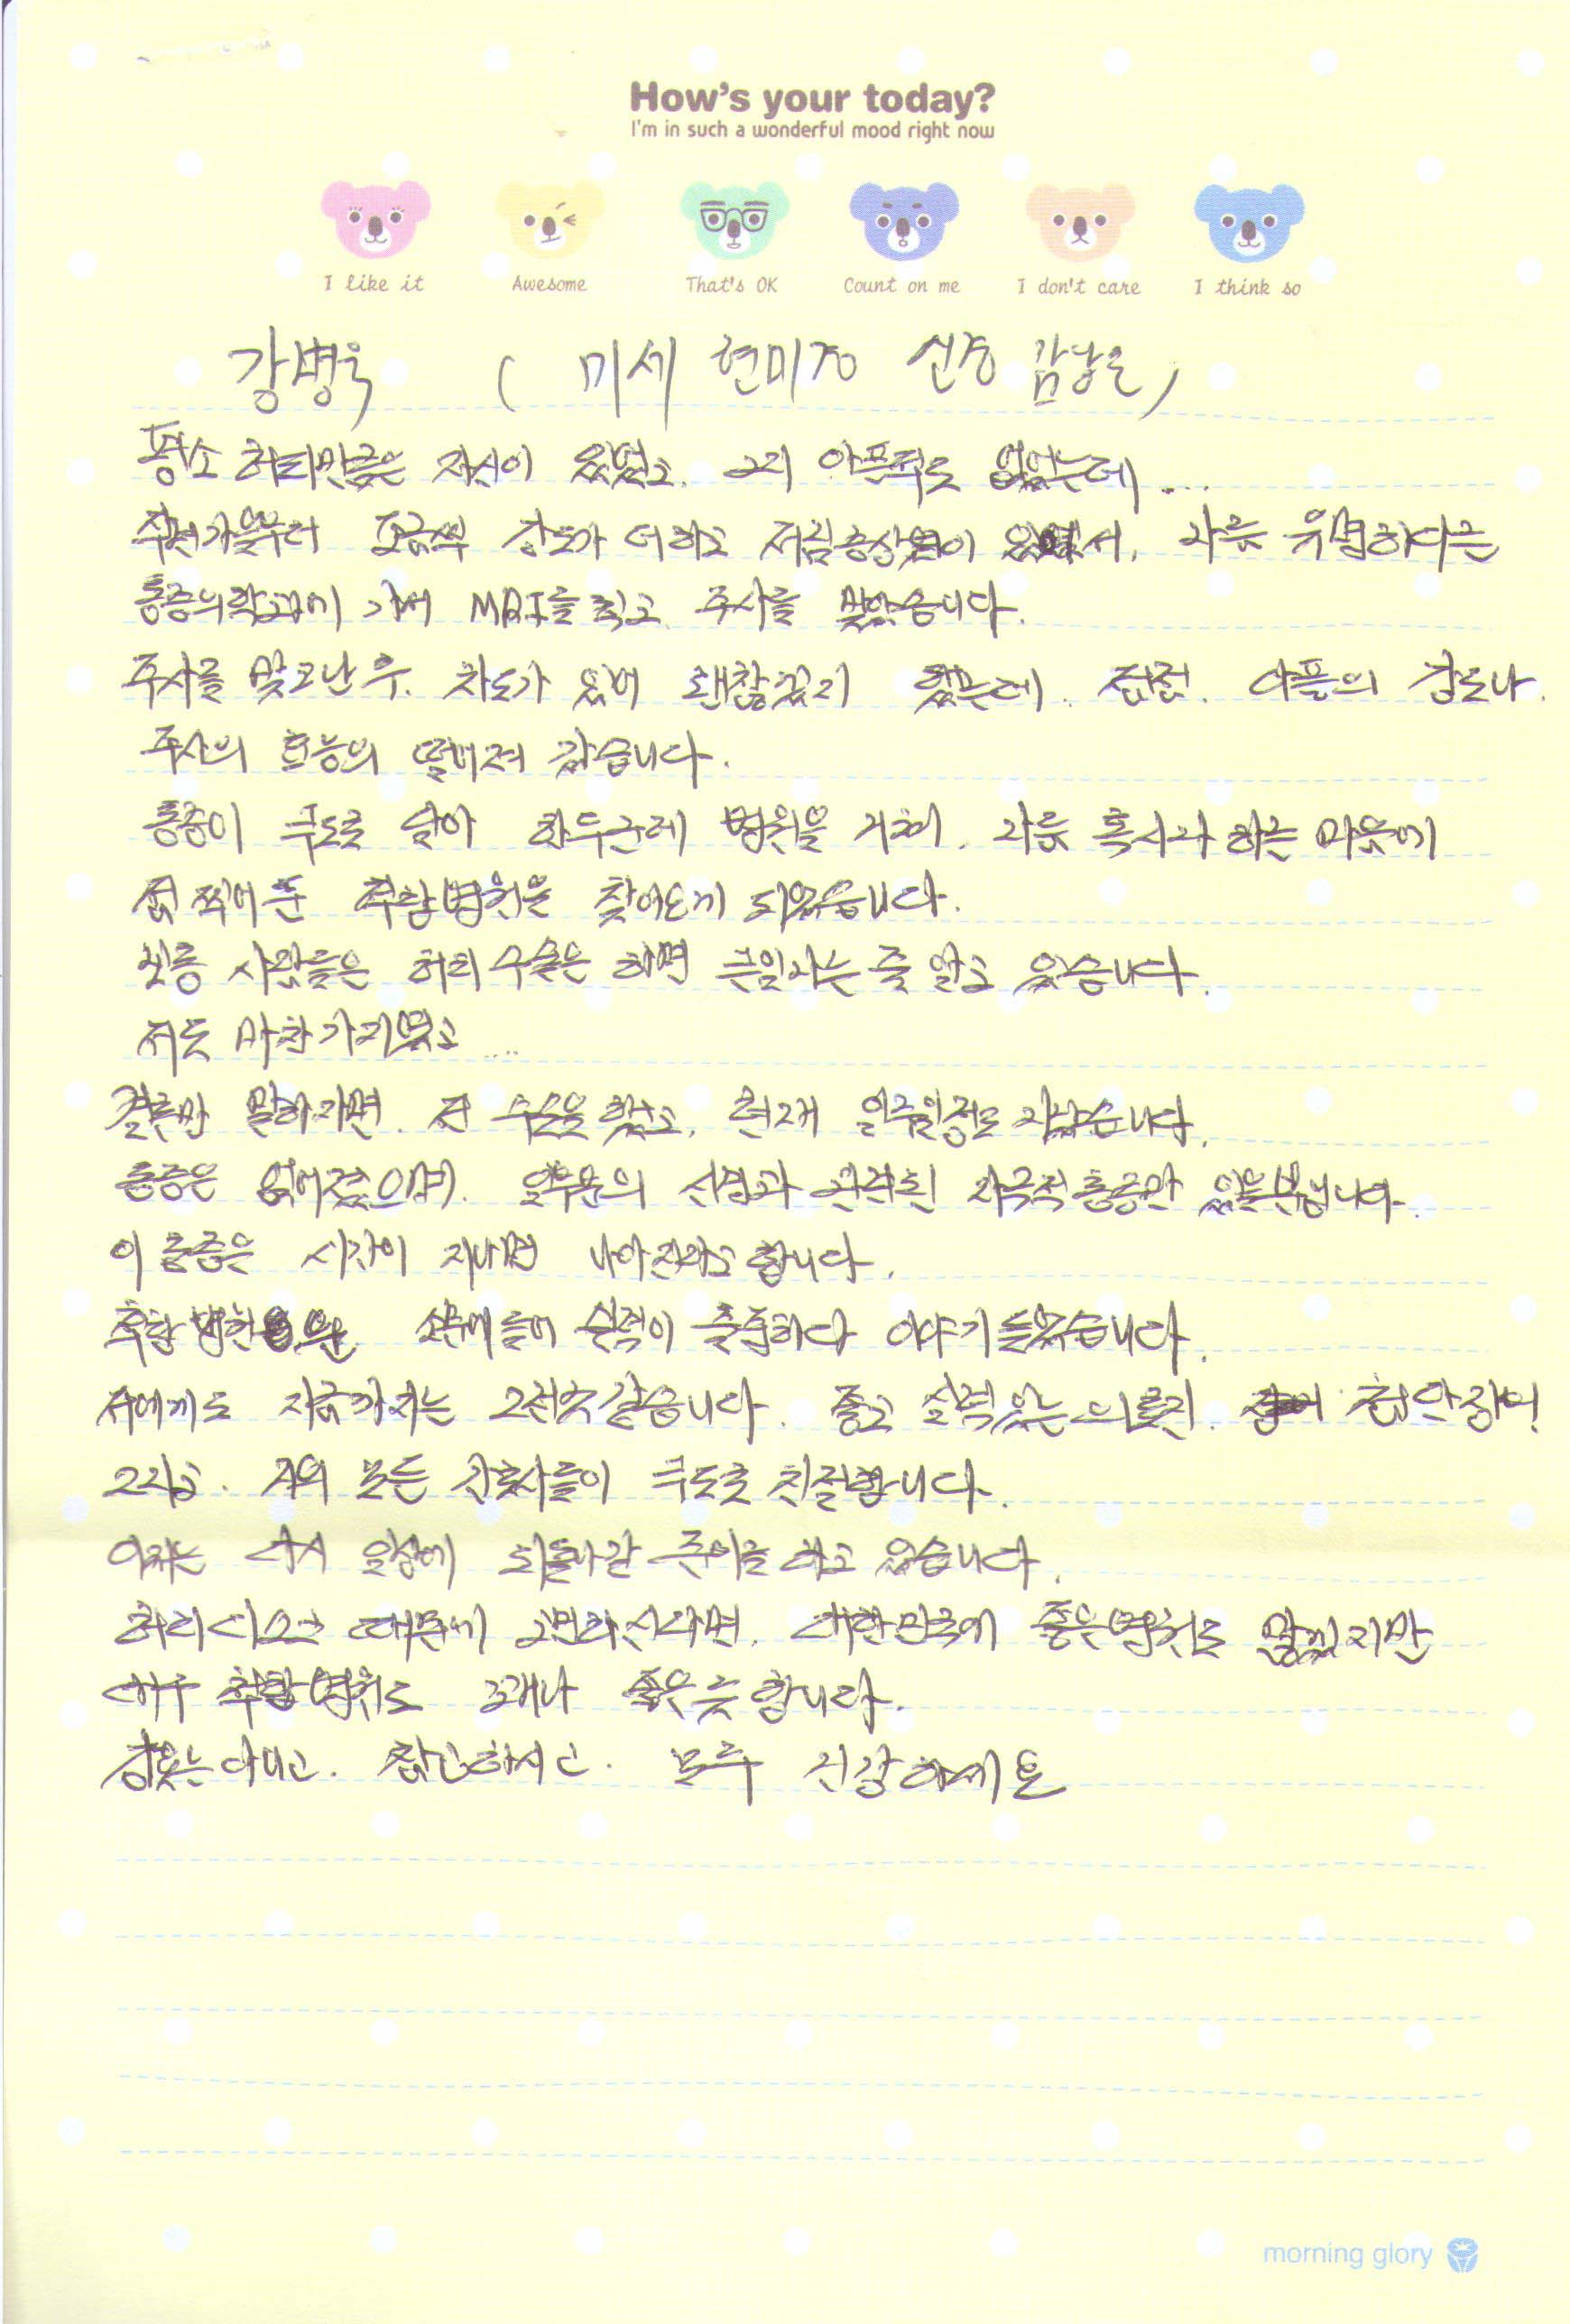 How's your today?
I'm in such a wonderful mood right now
I like it Awesome That's OK Count on me I don't care I think so
강병욱 ( 미세 현미경 신경 감압술 )
평소 허리만큼은 자신이 있었고. 그리 아픈적도 없었는데 ...
작년가을부터 조금씩 강도가 더하고 저림증상이 있어서, 나름 유명하다는
통증의학과에 가서 MRI를 찍고 주사를 맞았습니다.
주사를 맞고난 후. 차도가 있어 괜찮겠지 했는데. 점점. 아픔의 강도나.
주사의 효능의 떨어져 갔습니다.
통증이 극도로 달아 한두군데 병원을 거쳐. 나름 혹시나 하는 마음에
점 찍어 둔 척탑병원을 찾아오게 되었습니다.
보통 사람들은 허리 수술은 하면 큰일나는 줄 알고 있습니다.
저도 마찬가지였고 ...
결론만 말하자면. 전 수술을 했고. 현재 일주일정도 지났습니다.
통증은 없어졌으며. 일부분의 신경과 관련된 자극적 통증만 있을뿐입니다.
이 통증은 시간이 지나면 나아진다고 합니다.
척탑병원은 소문에 들어 실력이 출중하다 이야기 들었습니다.
저에게도 지금까지는 그런것 같습니다. 좋고 실력있는 의료진. 첨단장비!
그리고. 그외 모든 간호사들이 극도로 친절합니다.
이제는 다시 일상에 되돌아갈 준비를 하고 있습니다.
허리디스크 때문에 고민하신다면. 대한민국에 좋은병원도 많겠지만
대구 척탑병원도 꽤나 좋은 듯 합니다.
참고하시고. 모두 건강하세요
morning glory